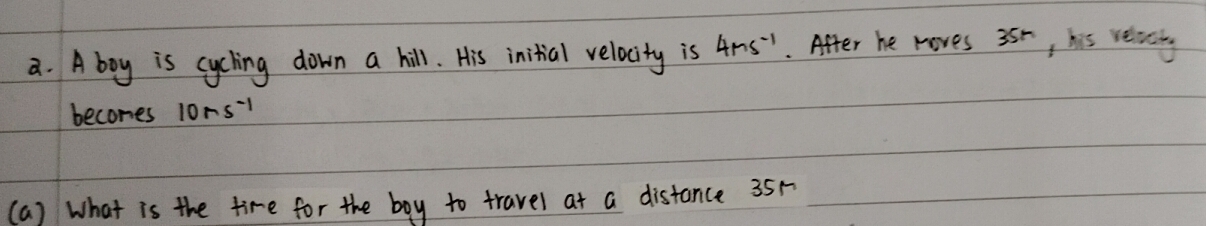 2. A boy is cycling down a hill. His initial velocity is 4ms⁻¹. After he moves 35m, his velocity
becomes 10ms⁻¹
(a) What is the time for the boy to travel at a distance 35m